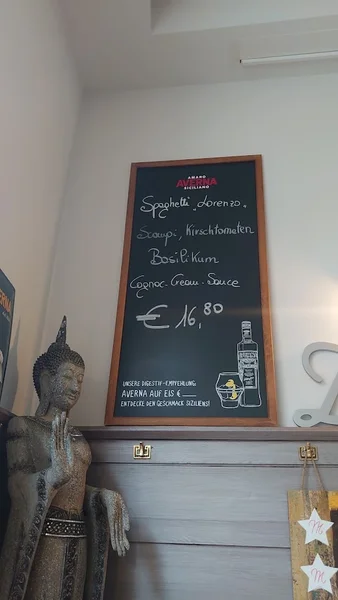 AMARO
AVERNA
SICILIANO
Spaghetti "Lorenzo"
Scampi, Kirschtomaten
Basilikum
Cognac-Cream-Sauce
€ 16,80
UNSERE DIGESTIF-EMPFEHLUNG
AVERNA AUF EIS €____
ENTDECKE DEN GESCHMACK SIZILIENS!